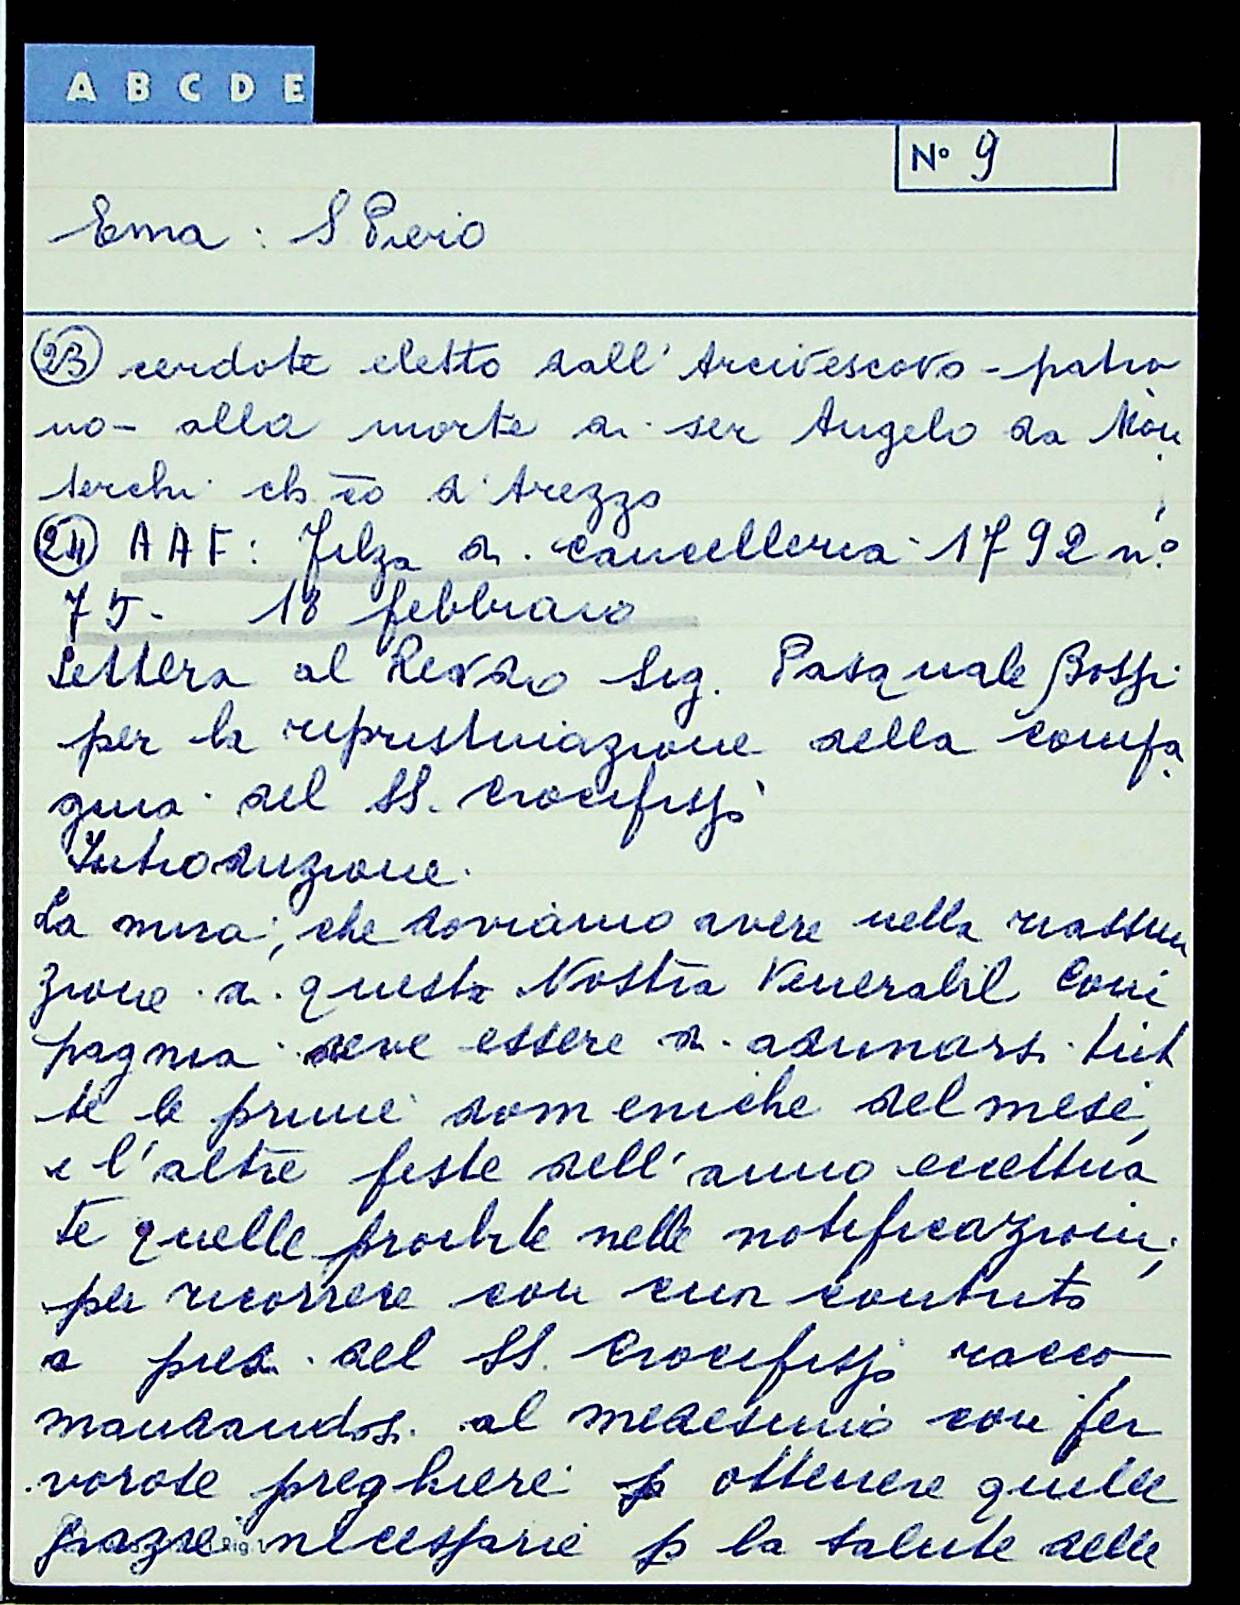 A B C D E
N° 9
Ema: S Piero
23 cerdote eletto dall' Arcivescovo - patro
no - alla morte di ser Angelo da Mon
terchi ch co d'Arezzo
24 AAF: Filza di cancelleria 1792 n.°
75 - 18 febbraio
Lettera al Revdo Sig. Pasquale Bossi
per la ripristinazione della compa
gnia del SS. Crocifisso
Introduzione.
La mira, che doviamo avere nella riassun
zione di questa Nostra Venerabil Com
pagnia deve essere di adunarsi tut
te le prime domeniche del mese,
e l'altre feste dell'anno eccettua
te quelle proibite nelle notificazioni;
per ricorrere con cuor contrito
a piedi del SS. Crocifisso racco
mandandosi al medesimo con fer
vorose preghiere p ottenere quelle
grazie necessarie p la salute delle